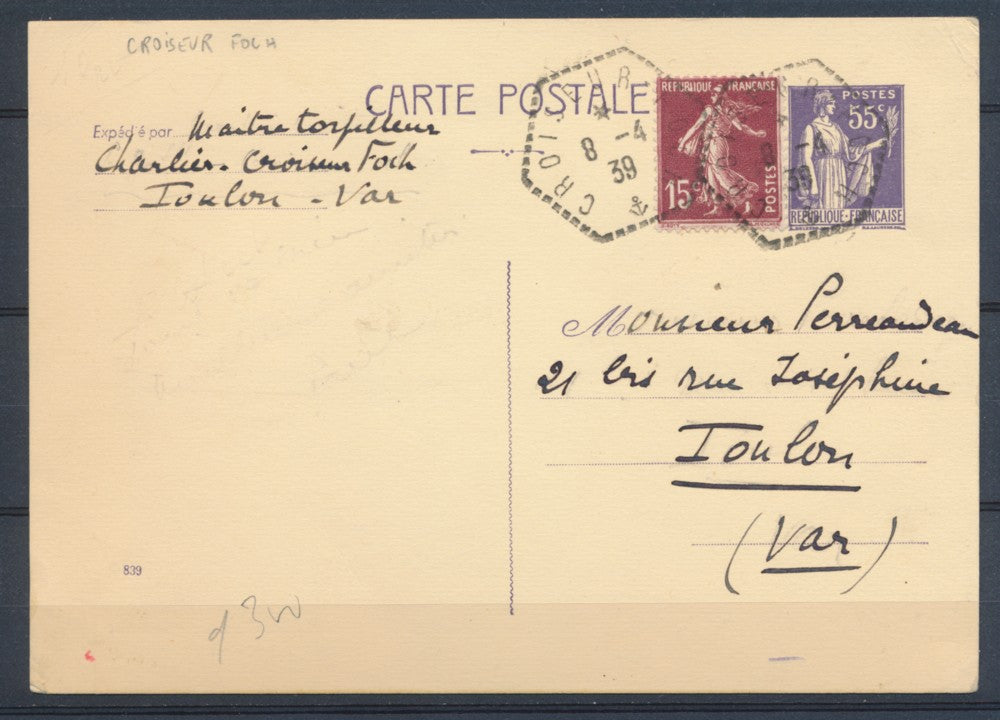 CROISEUR FOCH
CARTE POSTALE
Expédié par Maitre torpilleur
Charlier. Croiseur Foch
Toulon - Var
CROISEUR
8 -4
39
REPUBLIQUE FRANÇAISE
15c
POSTES
8 -4
39
POSTES
55c
REPUBLIQUE FRANÇAISE
Monsieur Perreaudeau
21 bis rue Joséphine
Toulon
(Var)
839